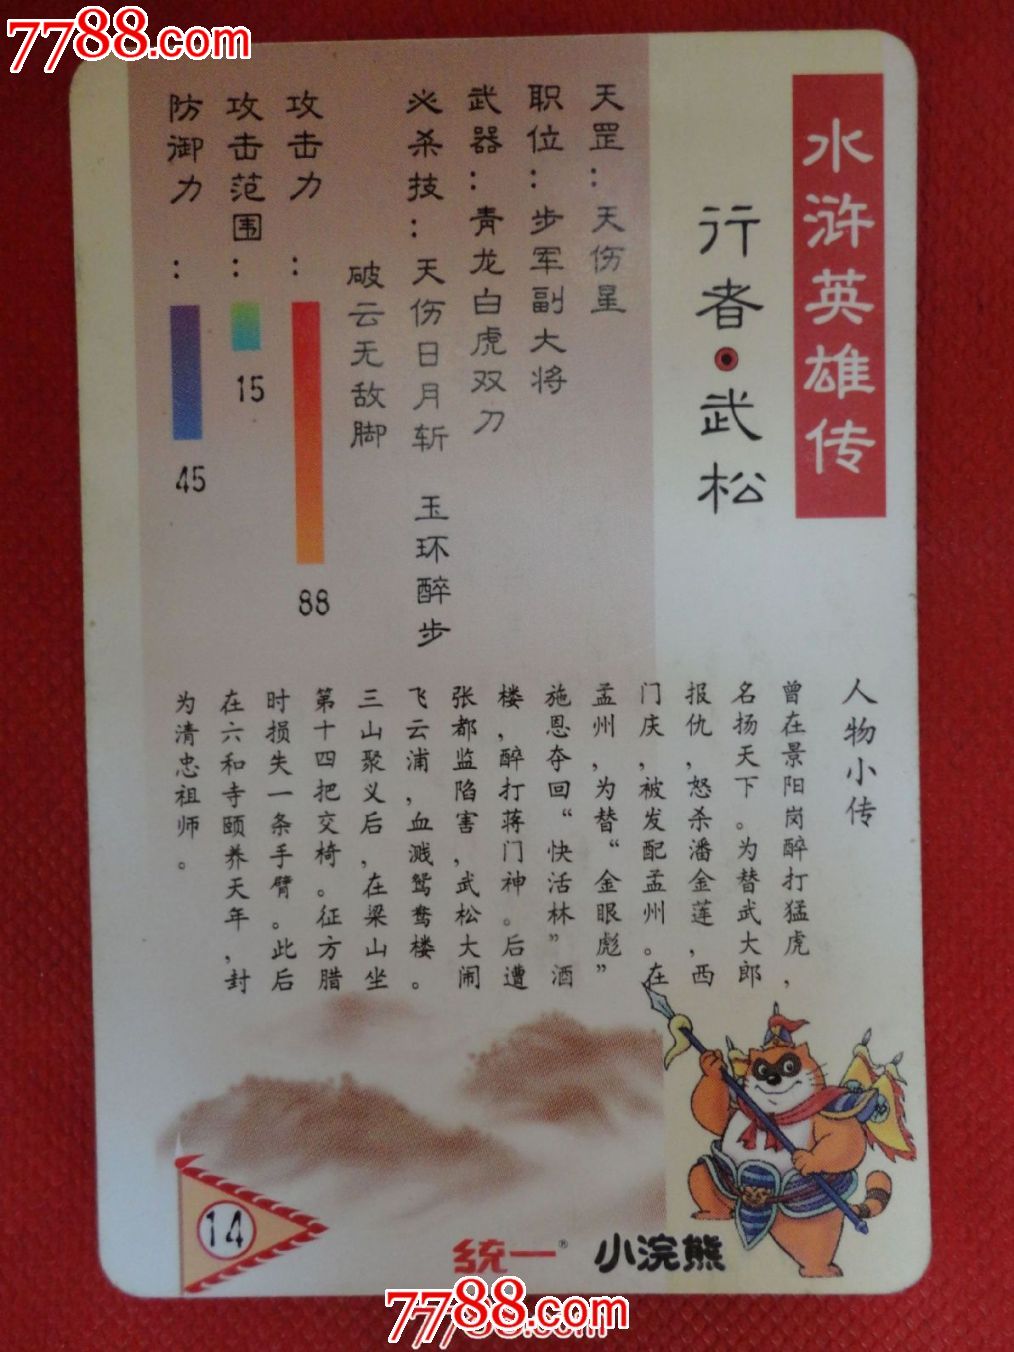 7788.com
水浒英雄传
行者·武松
天罡：天伤星
职位：步军副大将
武器：青龙白虎双刀
必杀技：天伤日月斩 玉环醉步
破云无敌脚
攻击力：88
攻击范围：15
防御力：45
人物小传
曾在景阳岗醉打猛虎，
名扬天下。为替武大郎
报仇，怒杀潘金莲，西
门庆，被发配孟州。在
孟州，为替“金眼彪”
施恩夺回“快活林”酒
楼，醉打蒋门神。后遭
张都监陷害，武松大闹
飞云浦，血溅鸳鸯楼。
三山聚义后，在梁山坐
第十四把交椅。征方腊
时损失一条手臂。此后
在六和寺颐养天年，封
为清忠祖师。
14
统一® 小浣熊
7788.com
7788.com